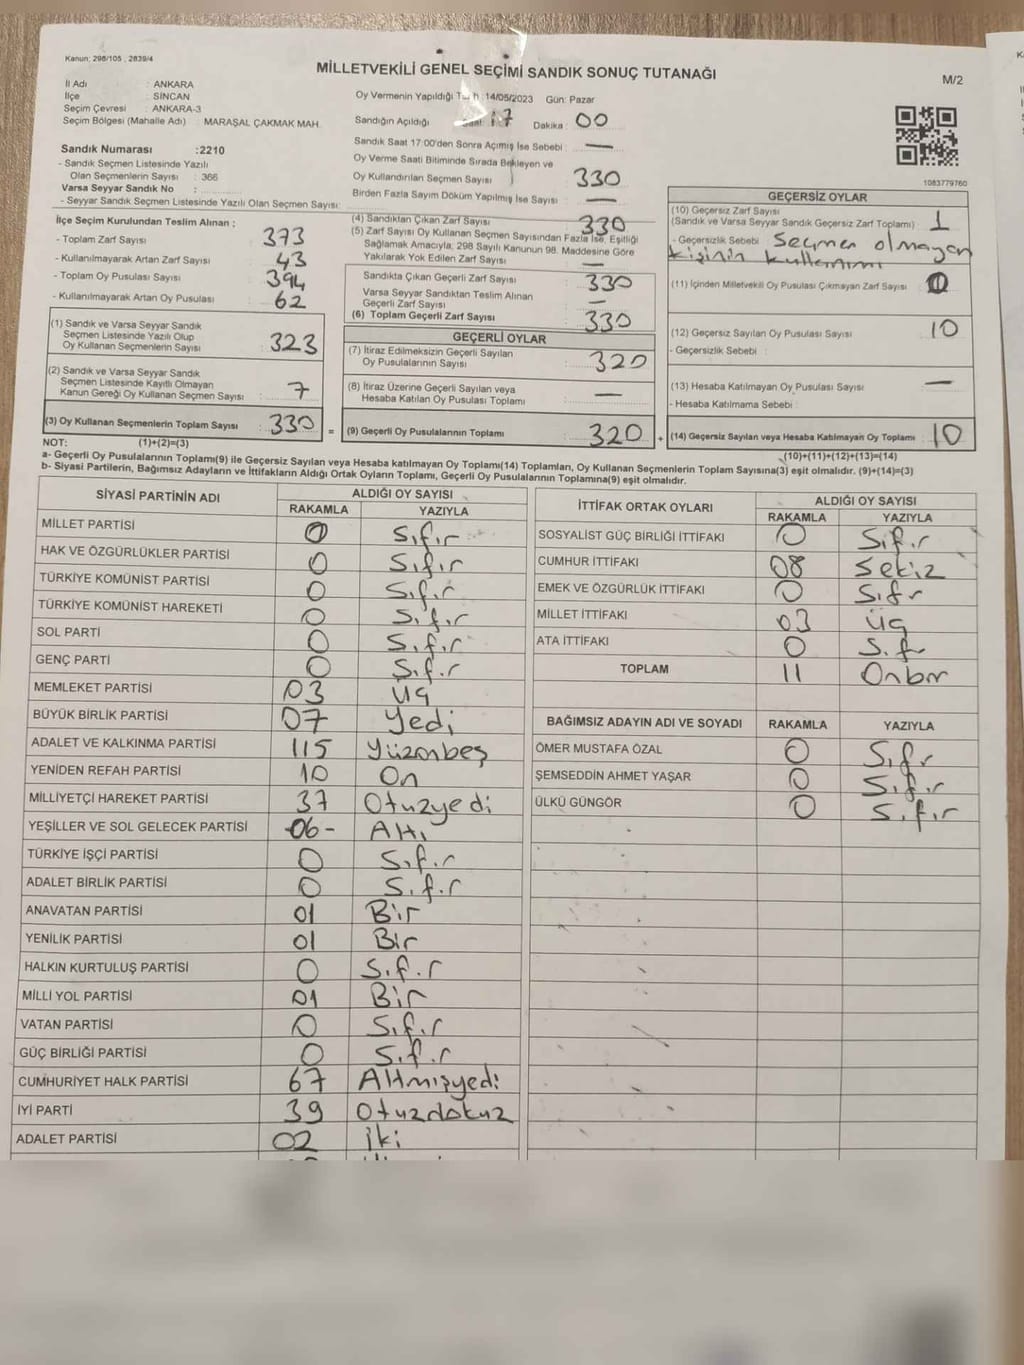 Kanun: 298/105 , 2839/4
MİLLETVEKİLİ GENEL SEÇİMİ SANDIK SONUÇ TUTANAĞI
M/2
İl Adı : ANKARA
İlçe : SİNCAN
Seçim Çevresi : ANKARA-3
Seçim Bölgesi (Mahalle Adı) : MARAŞAL ÇAKMAK MAH.
Sandık Numarası :2210
- Sandık Seçmen Listesinde Yazılı
Olan Seçmenlerin Sayısı : 366
Varsa Seyyar Sandık No :
- Seyyar Sandık Seçmen Listesinde Yazılı Olan Seçmen Sayısı:
Oy Vermenin Yapıldığı 14/05/2023 Gün: Pazar
Sandığın Açıldığı Saat: 17 Dakika : 00
Sandık Saat 17:00'den Sonra Açımış İse Sebebi : —
Oy Verme Saati Bitiminde Sırada Bekleyen ve
Oy Kullandırılan Seçmen Sayısı : 330
Birden Fazla Sayım Döküm Yapılmış İse Sayısı : —
1083779760
İlçe Seçim Kurulundan Teslim Alınan ;
- Toplam Zarf Sayısı : 373
- Kullanılmayarak Artan Zarf Sayısı : 43
- Toplam Oy Pusulası Sayısı : 394
- Kullanılmayarak Artan Oy Pusulası : 62
(1) Sandık ve Varsa Seyyar Sandık
Seçmen Listesinde Yazılı Olup
Oy Kullanan Seçmenlerin Sayısı : 323
(2) Sandık ve Varsa Seyyar Sandık
Seçmen Listesinde Kayıtlı Olmayan
Kanun Gereği Oy Kullanan Seçmen Sayısı : 7
(3) Oy Kullanan Seçmenlerin Toplam Sayısı : 330 =
(4) Sandıktan Çıkan Zarf Sayısı : 330
(5) Zarf Sayısı Oy Kullanan Seçmen Sayısından Fazla İse, Eşitliği
Sağlamak Amacıyla, 298 Sayılı Kanunun 98. Maddesine Göre
Yakılarak Yok Edilen Zarf Sayısı : —
Sandıkta Çıkan Geçerli Zarf Sayısı : 330
Varsa Seyyar Sandıktan Teslim Alınan
Geçerli Zarf Sayısı : —
(6) Toplam Geçerli Zarf Sayısı : 330
GEÇERLİ OYLAR
(7) İtiraz Edilmeksizin Geçerli Sayılan
Oy Pusulalarının Sayısı : 320
(8) İtiraz Üzerine Geçerli Sayılan veya
Hesaba Katılan Oy Pusulası Toplamı : —
(9) Geçerli Oy Pusulalarının Toplamı : 320 +
GEÇERSİZ OYLAR
(10) Geçersiz Zarf Sayısı
(Sandık ve Varsa Seyyar Sandık Geçersiz Zarf Toplamı) : 1
- Geçersizlik Sebebi : Seçmen olmayan
kişinin kullanımı
(11) İçinden Milletvekili Oy Pusulası Çıkmayan Zarf Sayısı : 0
(12) Geçersiz Sayılan Oy Pusulası Sayısı : 10
- Geçersizlik Sebebi :
(13) Hesaba Katılmayan Oy Pusulası Sayısı : —
- Hesaba Katılmama Sebebi :
(14) Geçersiz Sayılan veya Hesaba Katılmayan Oy Toplamı : 10
NOT: (1)+(2)=(3)
(10)+(11)+(12)+(13)=(14)
a- Geçerli Oy Pusulalarının Toplamı(9) ile Geçersiz Sayılan veya Hesaba katılmayan Oy Toplamı(14) Toplamları, Oy Kullanan Seçmenlerin Toplam Sayısına(3) eşit olmalıdır. (9)+(14)=(3)
b- Siyasi Partilerin, Bağımsız Adayların ve İttifakların Aldığı Ortak Oyların Toplamı, Geçerli Oy Pusulalarının Toplamına(9) eşit olmalıdır.
SİYASİ PARTİNİN ADI ALDIĞI OY SAYISI
RAKAMLA YAZIYLA
MİLLET PARTİSİ 0 Sıfır
HAK VE ÖZGÜRLÜKLER PARTİSİ 0 Sıfır
TÜRKİYE KOMÜNİST PARTİSİ 0 Sıfır
TÜRKİYE KOMÜNİST HAREKETİ 0 Sıfır
SOL PARTİ 0 Sıfır
GENÇ PARTİ 0 Sıfır
MEMLEKET PARTİSİ 03 Üç
BÜYÜK BİRLİK PARTİSİ 07 Yedi
ADALET VE KALKINMA PARTİSİ 115 Yüzonbeş
YENİDEN REFAH PARTİSİ 10 On
MİLLİYETÇİ HAREKET PARTİSİ 37 Otuzyedi
YEŞİLLER VE SOL GELECEK PARTİSİ 06- Altı
TÜRKİYE İŞÇİ PARTİSİ 0 Sıfır
ADALET BİRLİK PARTİSİ 0 Sıfır
ANAVATAN PARTİSİ 01 Bir
YENİLİK PARTİSİ 01 Bir
HALKIN KURTULUŞ PARTİSİ 0 Sıfır
MİLLİ YOL PARTİSİ 01 Bir
VATAN PARTİSİ 0 Sıfır
GÜÇ BİRLİĞİ PARTİSİ 0 Sıfır
CUMHURİYET HALK PARTİSİ 67 Altmışyedi
İYİ PARTİ 39 Otuzdokuz
ADALET PARTİSİ 02 İki
İTTİFAK ORTAK OYLARI ALDIĞI OY SAYISI
RAKAMLA YAZIYLA
SOSYALİST GÜÇ BİRLİĞİ İTTİFAKI 0 Sıfır
CUMHUR İTTİFAKI 08 Sekiz
EMEK VE ÖZGÜRLÜK İTTİFAKI 0 Sıfır
MİLLET İTTİFAKI 03 Üç
ATA İTTİFAKI 0 Sıfır
TOPLAM 11 Onbir
BAĞIMSIZ ADAYIN ADI VE SOYADI RAKAMLA YAZIYLA
ÖMER MUSTAFA ÖZAL 0 Sıfır
ŞEMSEDDİN AHMET YAŞAR 0 Sıfır
ÜLKÜ GÜNGÖR 0 Sıfır